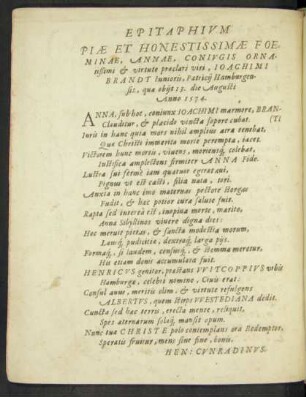 EPITAPHIVM
PIÆ ET HONESTISSIMÆ FOE-
MINÆ, ANNÆ, CONIVGIS ORNA-
tissimi & virtute præclari viri, IOACHIMI
BRANDT Iunioris, Patricij Hamburgen-
sis, quæ obijt 13. die Augusti
Anno 1574.
ANNA, sub hoc, coniunx IOACHIMI marmore, BRAN-
Clauditur, & placido vincta sopore cubat. (TI
Iuris in hanc quia mors nihil amplius atra tenebat,
Quæ Christi immerita morte perempta, iacet.
Victorem hunc mortis, vivens, moriensq; celebat,
Iustifica amplectens firmiter ANNA Fide.
Lustra sui fermè iam quatuor egerat ævi,
Pignus ut est casti, filia nata, tori.
Anxia in hanc imo maternas pectore
Fudit, & hac potior cura salute fuit.
Rapta sed interea est, inopina morte, marito,
Anna Sibyllinos vivere digna dies:
Hoc meruit pietas, & sancta modestia morum,
Lausq; pudicitiæ, dextraq; larga pijs.
Formaq;, si tandem, censusq;, & stemma meretur.
His etiam donis accumulata fuit.
HENRICVS genitor, præstans WITCOPPIVS urbis
Hamburgæ, celebri nomine, Civis erat:
Consul avus, meritis clarus, & virtute refulgens
ALBERTVS, quem stirps WESTEDIANA dedit.
Cuncta sed hæc terris, erecta mente, reliquit,
Spes æternarum solaq; mansit opum.
Nunc tua CHRISTE polo contemplans ora Redemptor,
Speratis fruitur, mens sine fine, bonis.
HEN: CVNRADINVS.